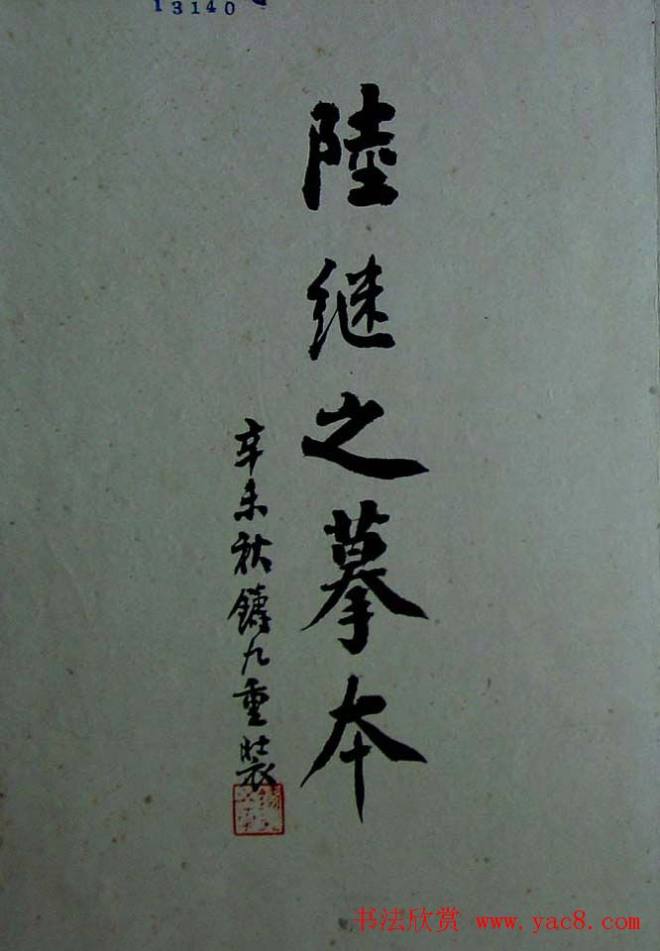 13140
陸继之摹本
辛未秋鑄九重裝
书法欣赏 www.yac8.com